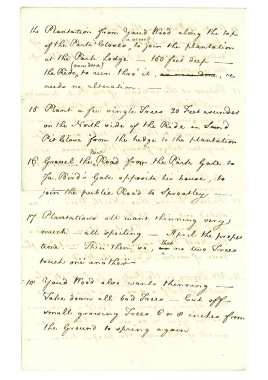 14 Plantation from Yaud Wood along the top
of the Park Closes, to join the plantation
at the Park Lodge — 160 feet deep
the Ride, to run thro' it, as now done, re
needs no alteration —
15 Plant a few single Trees 20 Feet asunder
on the North side of the Ride in Sand
Pit Close from the hedge to the plantation
16 Gravel the new Road from the Park Gate to
Ja. Bird's Gate opposite his house, to
join the public Road to Sproatley —
17 Plantations all want thinning very
much — all spoiling — April the proper
time — Thin them so, that no two Trees
touch one another
18 Yaud Wood also wants thinning —
Take down all bad Trees — Cut off
small growing Trees 6 or 8 inches from
the Ground to spring again